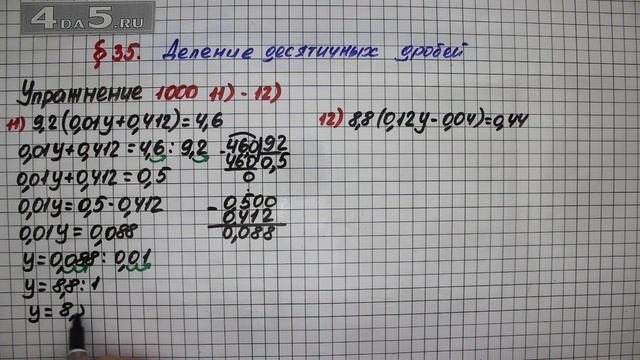 4DA5.RU
§ 35. Деление десятичных дробей
Упражнение 1000 11) - 12)
11) 9,2(0,01y+0,412)=4,6
0,01y+0,412=4,6:9,2
0,01y+0,412=0,5
0,01y=0,5-0,412
0,01y=0,088
y=0,088:0,01
y=8,8:1
y=8,
-460|92
460|0,5
0
-0,500
0,412
0,088
12) 8,8(0,12y-0,04)=0,44